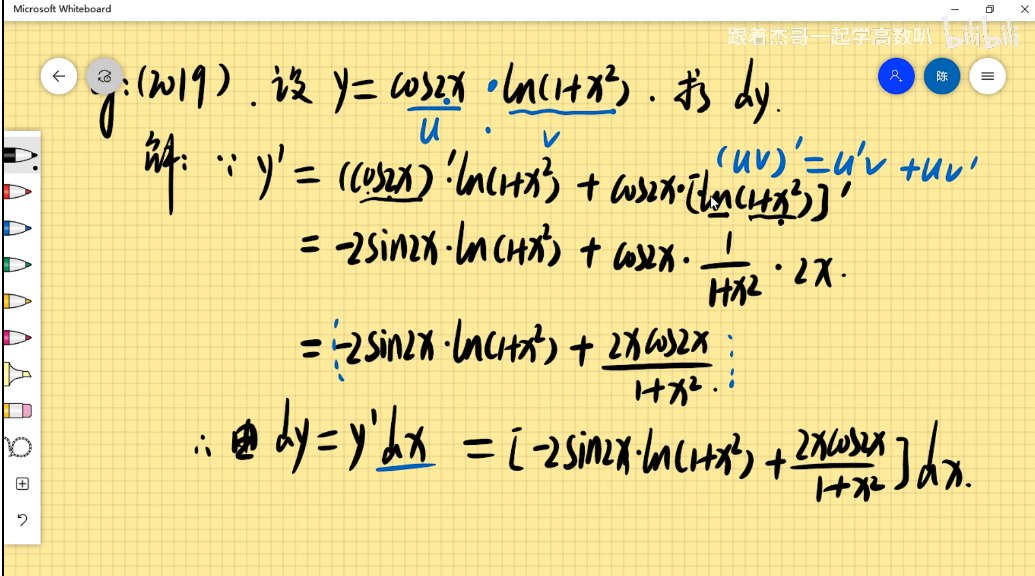 Microsoft Whiteboard
跟着杰哥一起学高数叭 bilibili
陈
(2019). 设 y = cos2x · ln(1+x²). 求 dy.
u · v
(uv)' = u'v + uv'
解: ∵ y' = (cos2x)'·ln(1+x²) + cos2x·[ln(1+x²)]'
= -2sin2x·ln(1+x²) + cos2x · 1/(1+x²) · 2x.
= -2sin2x·ln(1+x²) + 2xcos2x/(1+x²).
∴ dy = y'dx = [-2sin2x·ln(1+x²) + 2xcos2x/(1+x²)]dx.